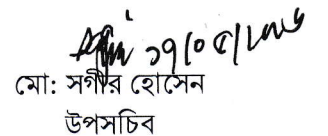 ১৭/০৫/২০১৬
মো: সগীর হোসেন
উপসচিব